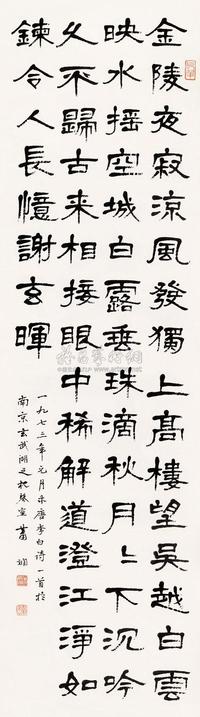 金陵夜寂涼風發獨上高樓望吳越白雲
映水搖空城白露垂珠滴秋月〻下沉吟
久不歸古來相接眼中稀解道澄江淨如
鍊令人長憶謝玄暉
一九七三年元月录唐李白诗一首於
南京玄武湖之枕琴室 蕭娴